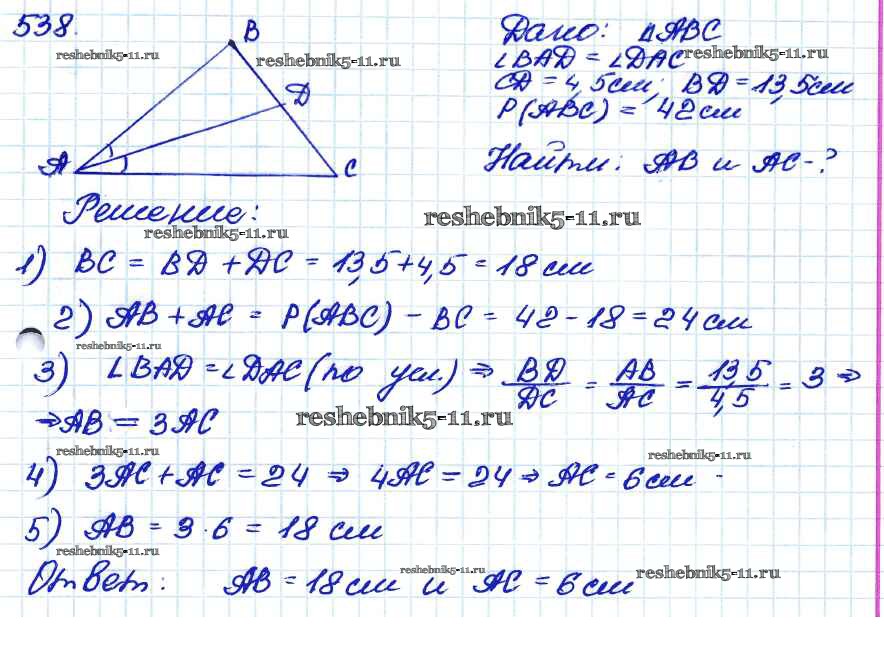 538.
B
Дано: ΔABC
reshebnik5-11.ru
reshebnik5-11.ru
∠BAD = ∠DAC
CD = 4,5см; BD = 13,5см
D
P(ABC) = 42см
A
C
Найти: AB и AC-?
Решение:
reshebnik5-11.ru
reshebnik5-11.ru
1) BC = BD + DC = 13,5+4,5 = 18 см
2) AB + AC = P(ABC) - BC = 42-18 = 24 см
reshebnik5-11.ru
3) ∠BAD = ∠DAC (по усл.) ⇒ BD/DC = AB/AC = 13,5/4,5 = 3 ⇒
⇒ AB = 3AC
reshebnik5-11.ru
reshebnik5-11.ru
reshebnik5-11.ru
4) 3AC + AC = 24 ⇒ 4AC = 24 ⇒ AC = 6 см
5) AB = 3·6 = 18 см
reshebnik5-11.ru
reshebnik5-11.ru
reshebnik5-11.ru
Ответ: AB = 18 см и AC = 6 см